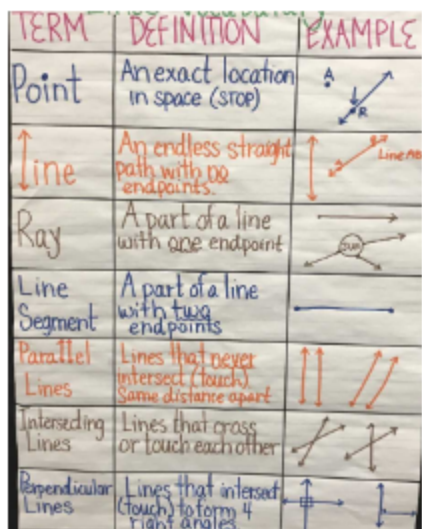 TERM DEFINITION EXAMPLE
Point
An exact location
in space (STOP)
A
R
Line
An endless straight
path with no
endpoints.
Line AB
Ray
A part of a line
with one endpoint
SUN
Line
Segment
A part of a line
with two
endpoints
Parallel
Lines
Lines that never
intersect (touch)
Same distance apart
Intersecting
Lines
Lines that cross
or touch each other
Perpendicular
Lines
Lines that intersect
(touch) to form 4
right angles